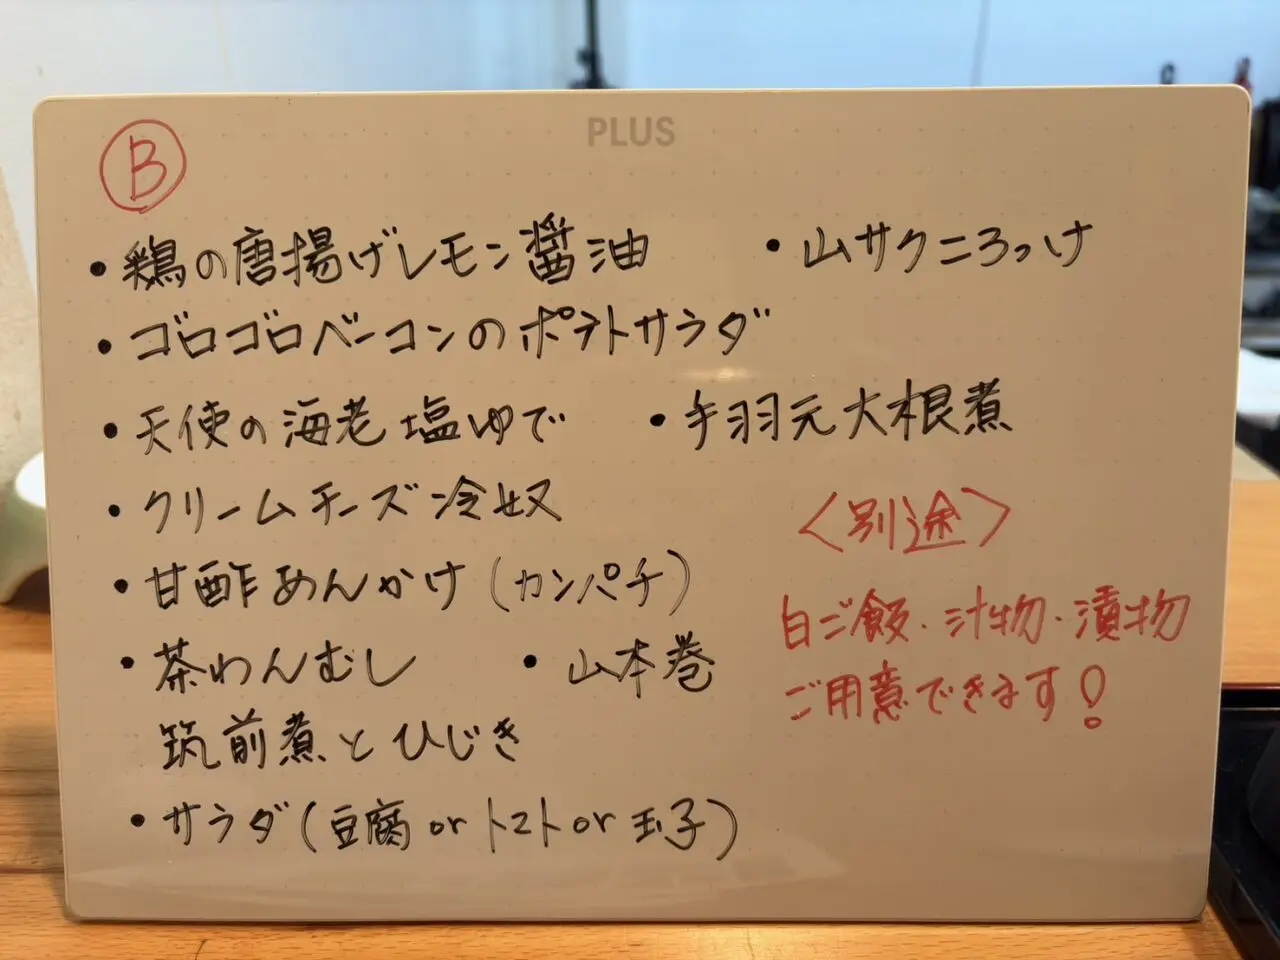 PLUS
B
・鶏の唐揚げレモン醤油 ・山サクニろっけ
・ゴロゴロベーコンのポテトサラダ
・天使の海老 塩ゆで ・手羽元大根煮
・クリームチーズ冷奴
〈別途〉
・甘酢あんかけ(カンパチ)
白ご飯・汁物・漬物
・茶わんむし ・山本巻
ご用意できます!
筑前煮とひじき
・サラダ(豆腐 or トマト or 玉子)